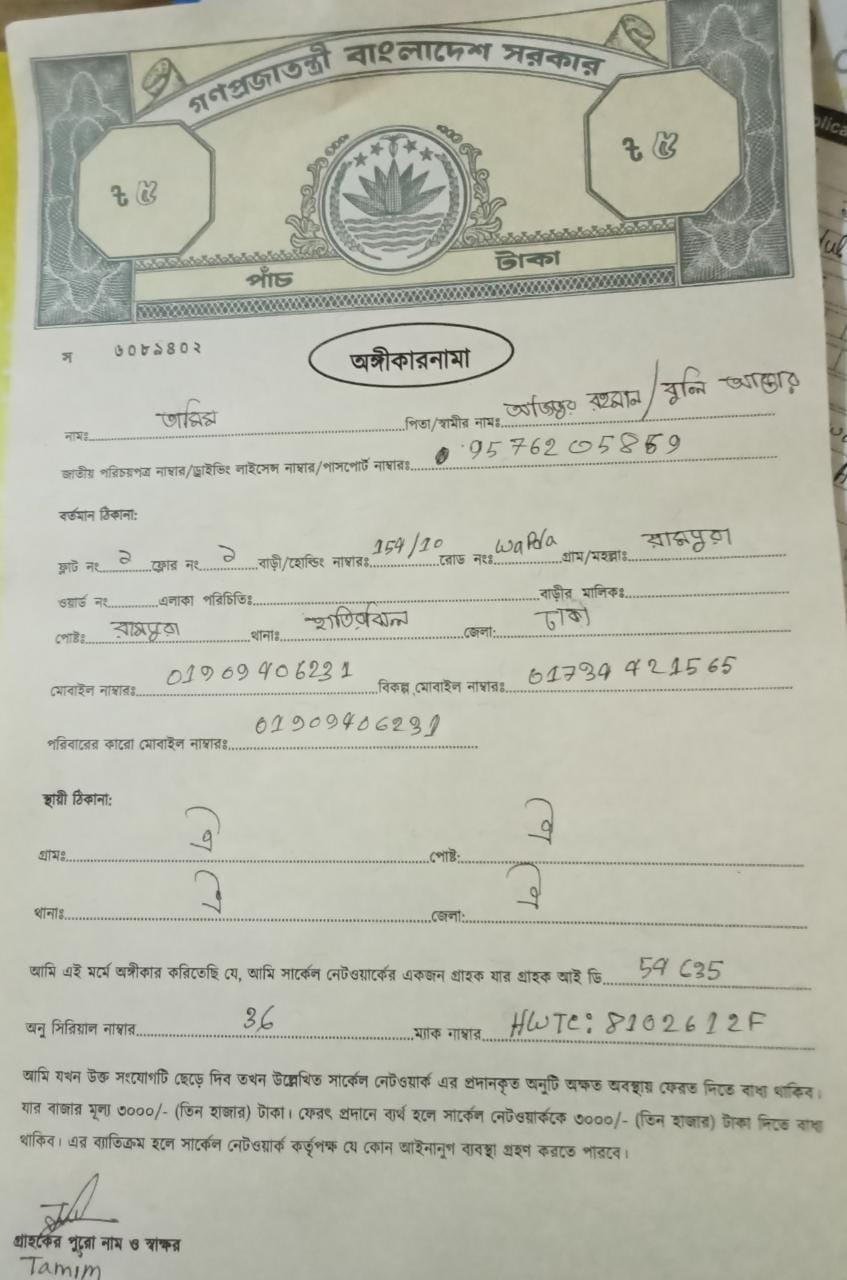 গণপ্রজাতন্ত্রী বাংলাদেশ সরকার
৳ ৫ ৳ ৫
পাঁচ টাকা
স ৬০৮৯৪০২
অঙ্গীকারনামা
নামঃ তামিম পিতা/স্বামীর নামঃ রহমান /
জাতীয় পরিচয়পত্র নাম্বার/ড্রাইভিং লাইসেন্স নাম্বার/পাসপোর্ট নাম্বারঃ
বর্তমান ঠিকানা:
ফ্লাট নং ২ ফ্লোর নং ২ বাড়ী/হোল্ডিং নাম্বারঃ 154/10 রোড নংঃ Wapda গ্রাম/মহল্লাঃ রামপুরা
ওয়ার্ড নং এলাকা পরিচিতিঃ বাড়ীর মালিকঃ
পোষ্টঃ রামপুরা থানাঃ হাতিরঝিল জেলা: ঢাকা
মোবাইল নাম্বারঃ বিকল্প মোবাইল নাম্বারঃ 01734421565
পরিবারের কারো মোবাইল নাম্বারঃ
স্থায়ী ঠিকানা:
গ্রামঃ ঐ পোষ্ট: ঐ
থানাঃ ঐ জেলা: ঐ
আমি এই মর্মে অঙ্গীকার করিতেছি যে, আমি সার্কেল নেটওয়ার্কের একজন গ্রাহক যার গ্রাহক আইডি
অনু সিরিয়াল নাম্বার 36 ম্যাক নাম্বার HWTC: 8102612F
আমি যখন উক্ত সংযোগটি ছেড়ে দিব তখন উল্লেখিত সার্কেল নেটওয়ার্ক এর প্রদানকৃত অনুটি অক্ষত অবস্থায় ফেরত দিতে বাধ্য থাকিব।
যার বাজার মূল্য ৩০০০/- (তিন হাজার) টাকা। ফেরৎ প্রদানে ব্যর্থ হলে সার্কেল নেটওয়ার্ককে ৩০০০/- (তিন হাজার) টাকা দিতে বাধ্য
থাকিব। এর ব্যতিক্রম হলে সার্কেল নেটওয়ার্ক কর্তৃপক্ষ যে কোন আইনানুগ ব্যবস্থা গ্রহণ করতে পারবে।
গ্রাহকের পুরো নাম ও স্বাক্ষর
Tamim